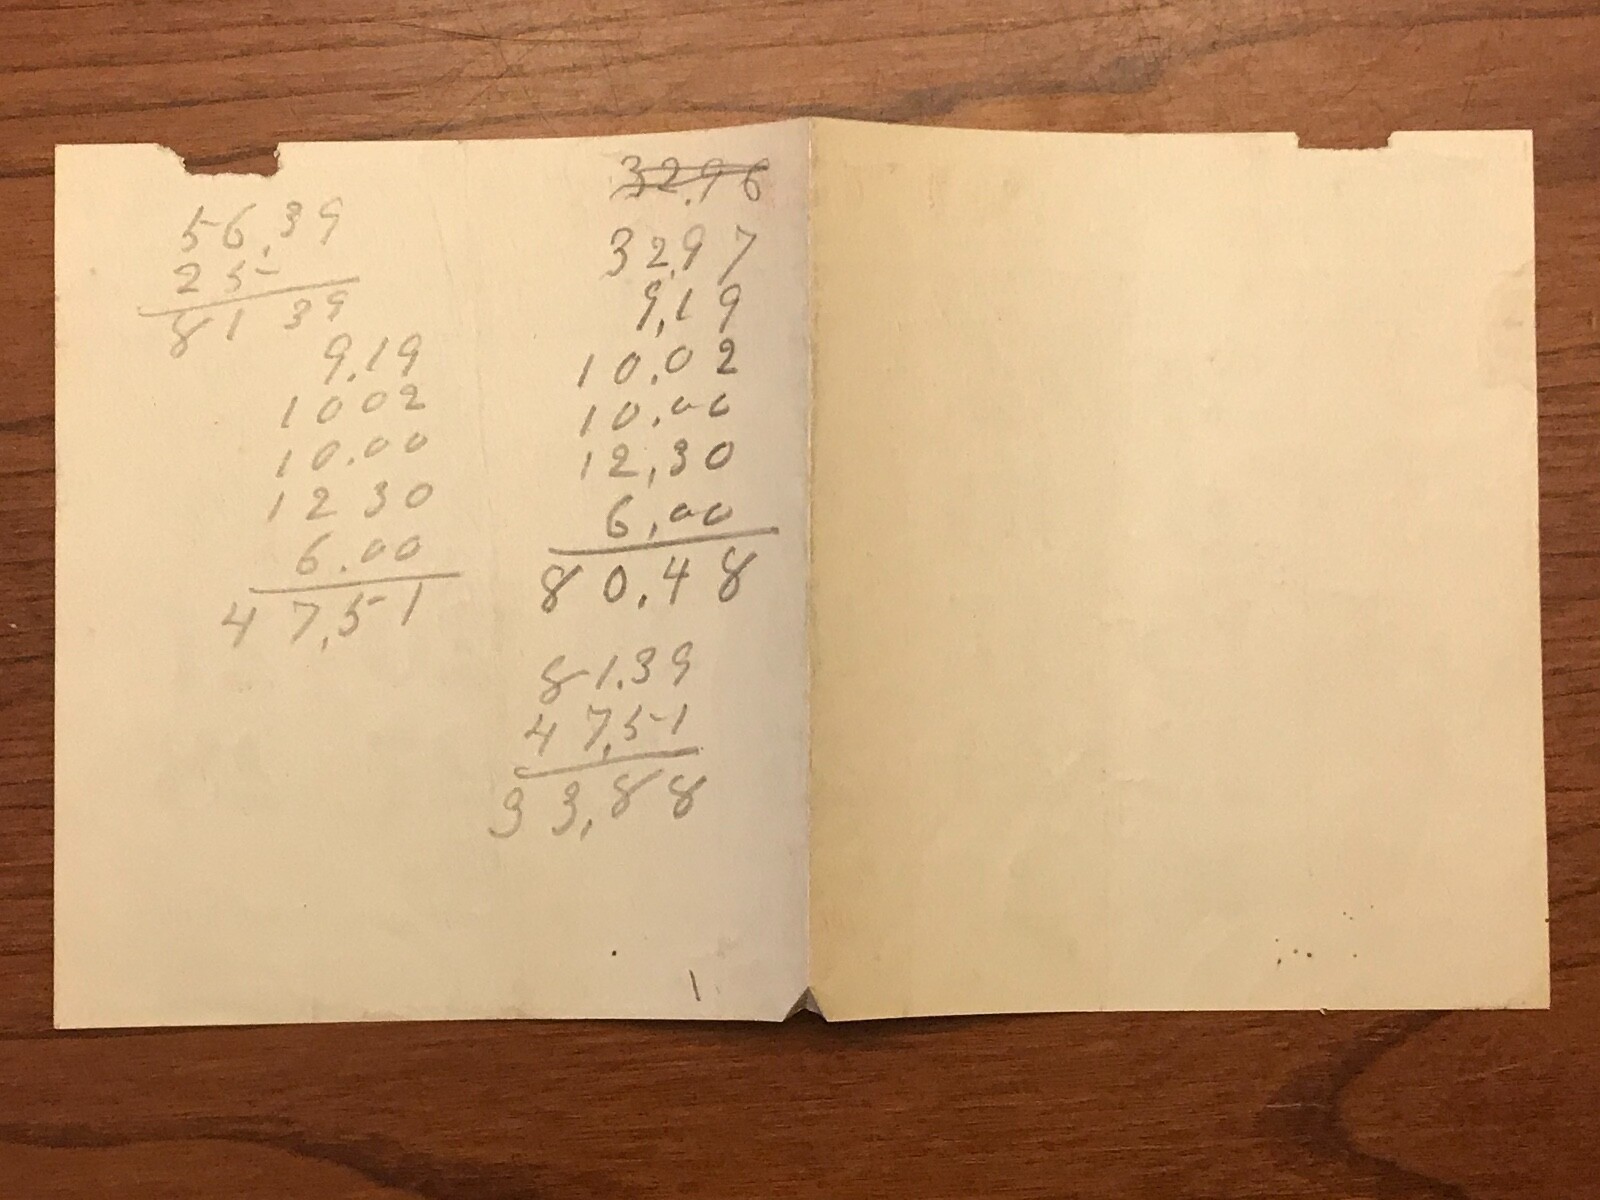 56.39
25-
81 39
9.19
10 02
10.00
12 30
6.00
47.51
32.96
32.97
9.19
10.02
10.00
12.30
6.00
80.48
81.39
47.51
33.88